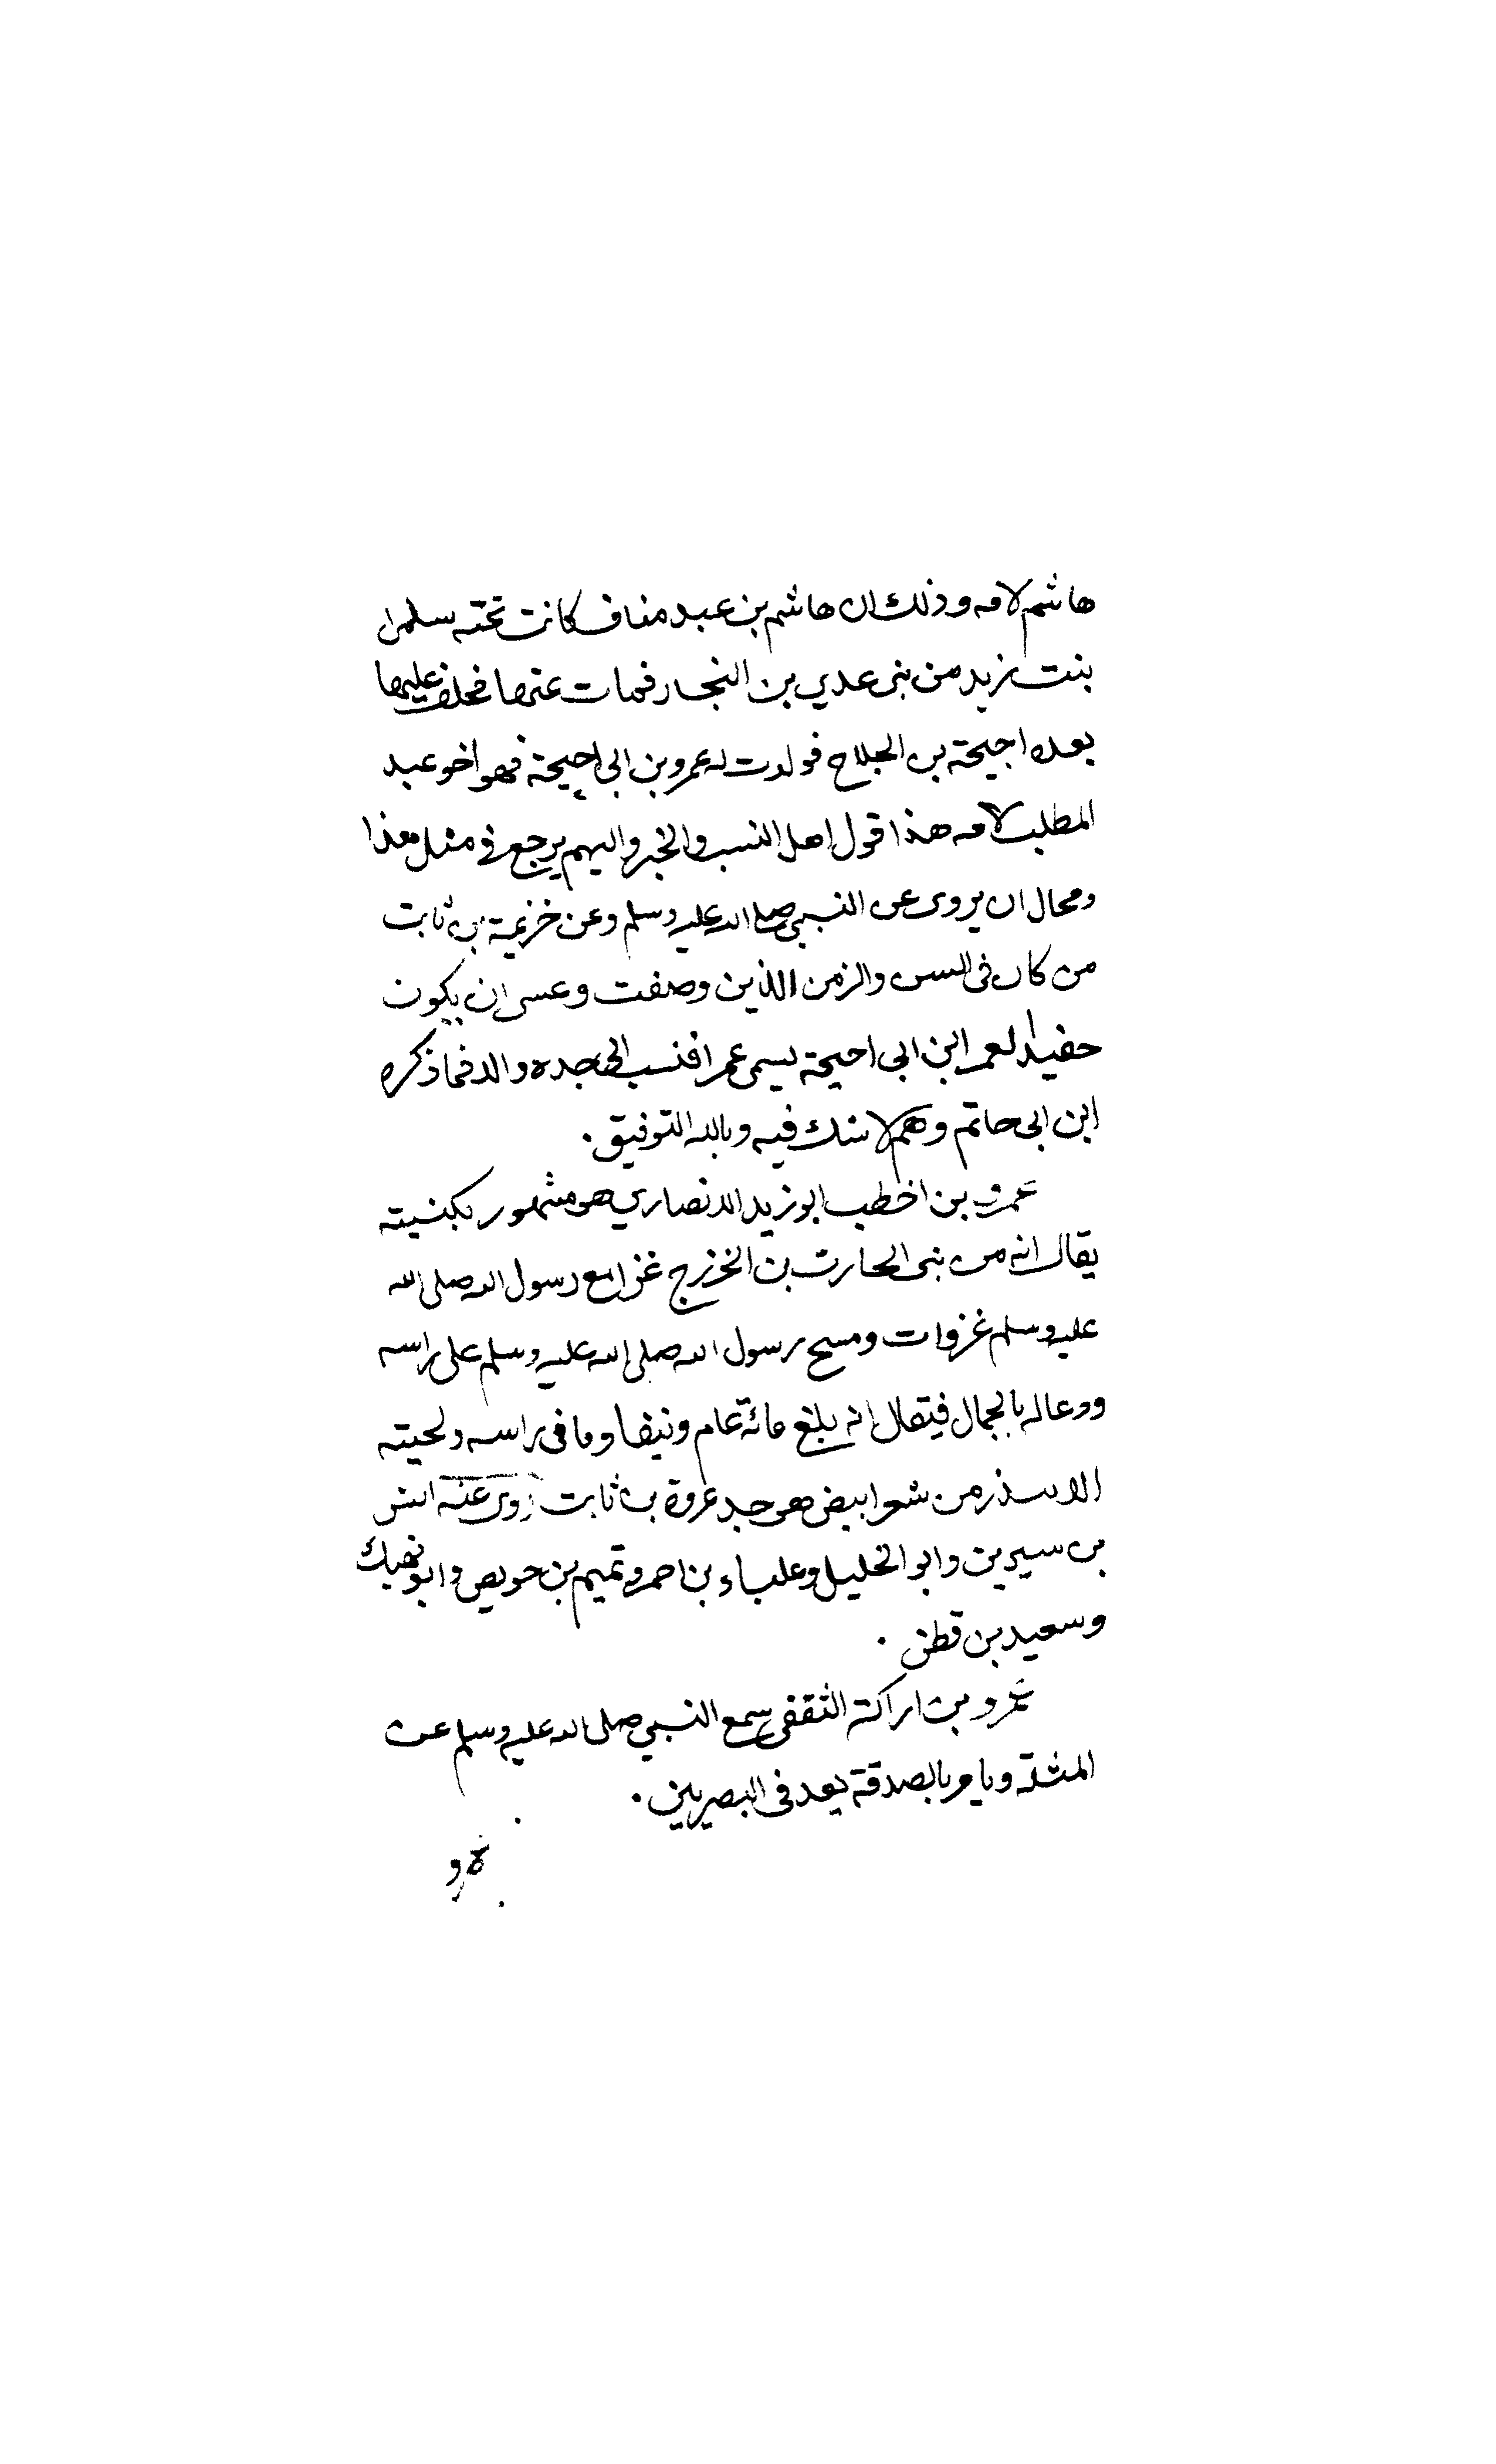 هاشم لامه وذلك ان هاشم بن عبد مناف كانت تحته سلمى
بنت زيد من بنى عدي بن النجار فمات عنها فخلف عليها
بعده احيحة بن الجلاح فولدت له عمرو بن ابى احيحة فهو اخو عبد
المطلب لامه هذا قول اهل النسب والخبر واليهم يرجع فى مثل هذا
ومحال ان يروى عن النبى صلى الله عليه وسلم وعن خزيمة بن ثابت
من كان فى السن والزمن اللذين وصفت وعسى ان يكون
حفيدا لعمر ابن ابى احيحة يسمى عمرا فنسب الى جده والا فما ذكره
ابن ابى حاتم وهم لا شك فيه وبالله التوفيق .
عمرو بن اخطب ابو زيد الانصاري هو مشهور بكنيته
يقال انه من بنى الحارث بن الخزرج غزا مع رسول الله صلى الله
عليه وسلم غزوات ومسح رسول الله صلى الله عليه وسلم على راسه
ودعا له بالجمال فيقال انه بلغ مائة عام ونيفا وما فى راسه ولحيته
الا نبذ من شعر ابيض هو جد عزرة بن ثابت روى عنه انس
بن سيرين وابو الخليل وعلباء بن احمر وتميم بن حويص وابو نهيك
وسعيد بن قطن .
عمرو بن اراكة الثقفى سمع النبي صلى الله عليه وسلم عن
المثلة ويامر بالصدقة يعد فى البصريين .
عمرو